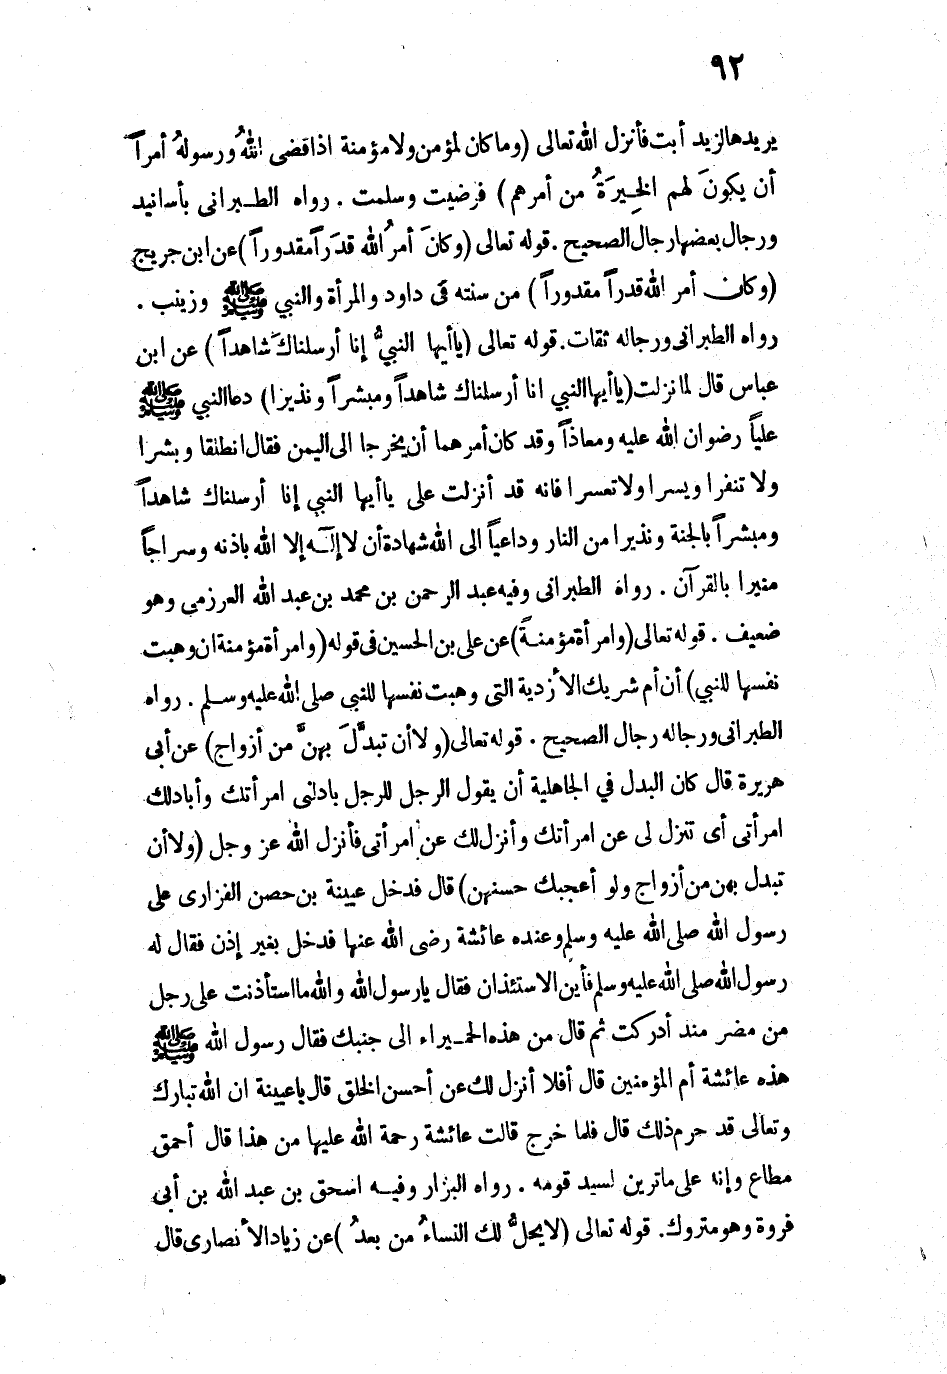 ٩٢
يريدها لزيد أبت فأنزل الله تعالى (وما كان لمؤمن ولا مؤمنة اذا قضى اللهُ ورسولهُ أمراً
أن يكونَ لهم الخِيرَةُ من أمرهم) فرضيت وسلمت . رواه الطبرانى بأسانيد
ورجال بعضها رجال الصحيح . قوله تعالى (وكانَ أمرُ الله قدَراً مقدوراً) عن ابن جريج
(وكان أمر الله قدراً مقدوراً) من سنته فى داود والمرأة والنبي ﷺ وزينب .
رواه الطبرانى ورجاله ثقات . قوله تعالى (ياأيها النبيُّ إنا أرسلناكَ شاهداً) عن ابن
عباس قال لما نزلت (ياأيها النبي انا أرسلناك شاهداً ومبشراً ونذيرا) دعا النبي ﷺ
علياً رضوان الله عليه ومعاذاً وقد كان أمرهما أن يخرجا الى اليمن فقال انطلقا وبشرا
ولا تنفرا ويسرا ولا تعسرا فانه قد أنزلت على ياأيها النبي إنا أرسلناك شاهداً
ومبشراً بالجنة ونذيرا من النار وداعياً الى الله شهادة أن لا إلـٰه إلا الله باذنه وسراجاً
منيرا بالقرآن . رواه الطبرانى وفيه عبد الرحمن بن محمد بن عبد الله العرزمى وهو
ضعيف . قوله تعالى (وامرأة مؤمنةً) عن على بن الحسين فى قوله (وامرأة مؤمنة ان وهبت
نفسها للنبي) أن أم شريك الأزدية التى وهبت نفسها للنبي صلى الله عليه وسلم . رواه
الطبرانى ورجاله رجال الصحيح . قوله تعالى (ولا أن تبدَّلَ بهنَّ من أزواج) عن أبى
هريرة قال كان البدل في الجاهلية أن يقول الرجل للرجل بادلنى امرأتك وأبادلك
امرأتى أى تنزل لى عن امرأتك وأنزل لك عن امرأتى فأنزل الله عز وجل (ولا أن
تبدل بهن من أزواج ولو أعجبك حسنهن) قال فدخل عيينة بن حصن الفزارى على
رسول الله صلى الله عليه وسلم وعنده عائشة رضى الله عنها فدخل بغير إذن فقال له
رسول الله صلى الله عليه وسلم فأين الاستئذان فقال يارسول الله والله ما استأذنت على رجل
من مضر منذ أدركت ثم قال من هذه الحميراء الى جنبك فقال رسول الله ﷺ
هذه عائشة أم المؤمنين قال أفلا أنزل لك عن أحسن الخلق قال ياعيينة ان الله تبارك
وتعالى قد حرم ذلك قال فلما خرج قالت عائشة رحمة الله عليها من هذا قال أحمق
مطاع وإنه على ماترين لسيد قومه . رواه البزار وفيه اسحق بن عبد الله بن أبى
فروة وهو متروك . قوله تعالى (لا يحلُّ لك النساءُ من بعدُ) عن زياد الأنصارى قال